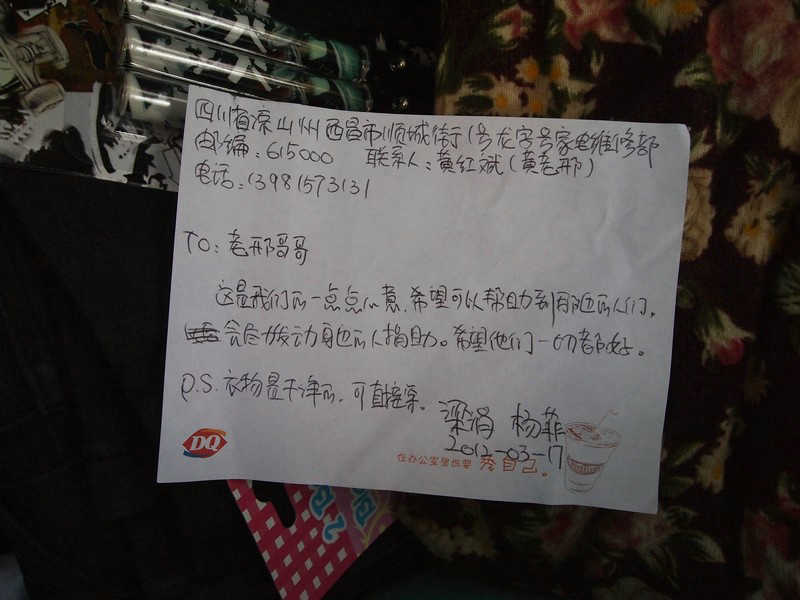 四川省凉山州西昌市顺城街1号龙字号家电维修部
邮编:615000 联系人:黄红斌(黄老邪)
电话:13981573131
TO:老邪哥哥
这是我们的一点点心意,希望可以帮助到那边的人们。
会尽力发动身边的人捐助。希望他们一切都好。
P.S.衣物是干净的,可直接穿。
梁涓 杨菲
2012-03-17
DQ
在办公室里也要秀自己。